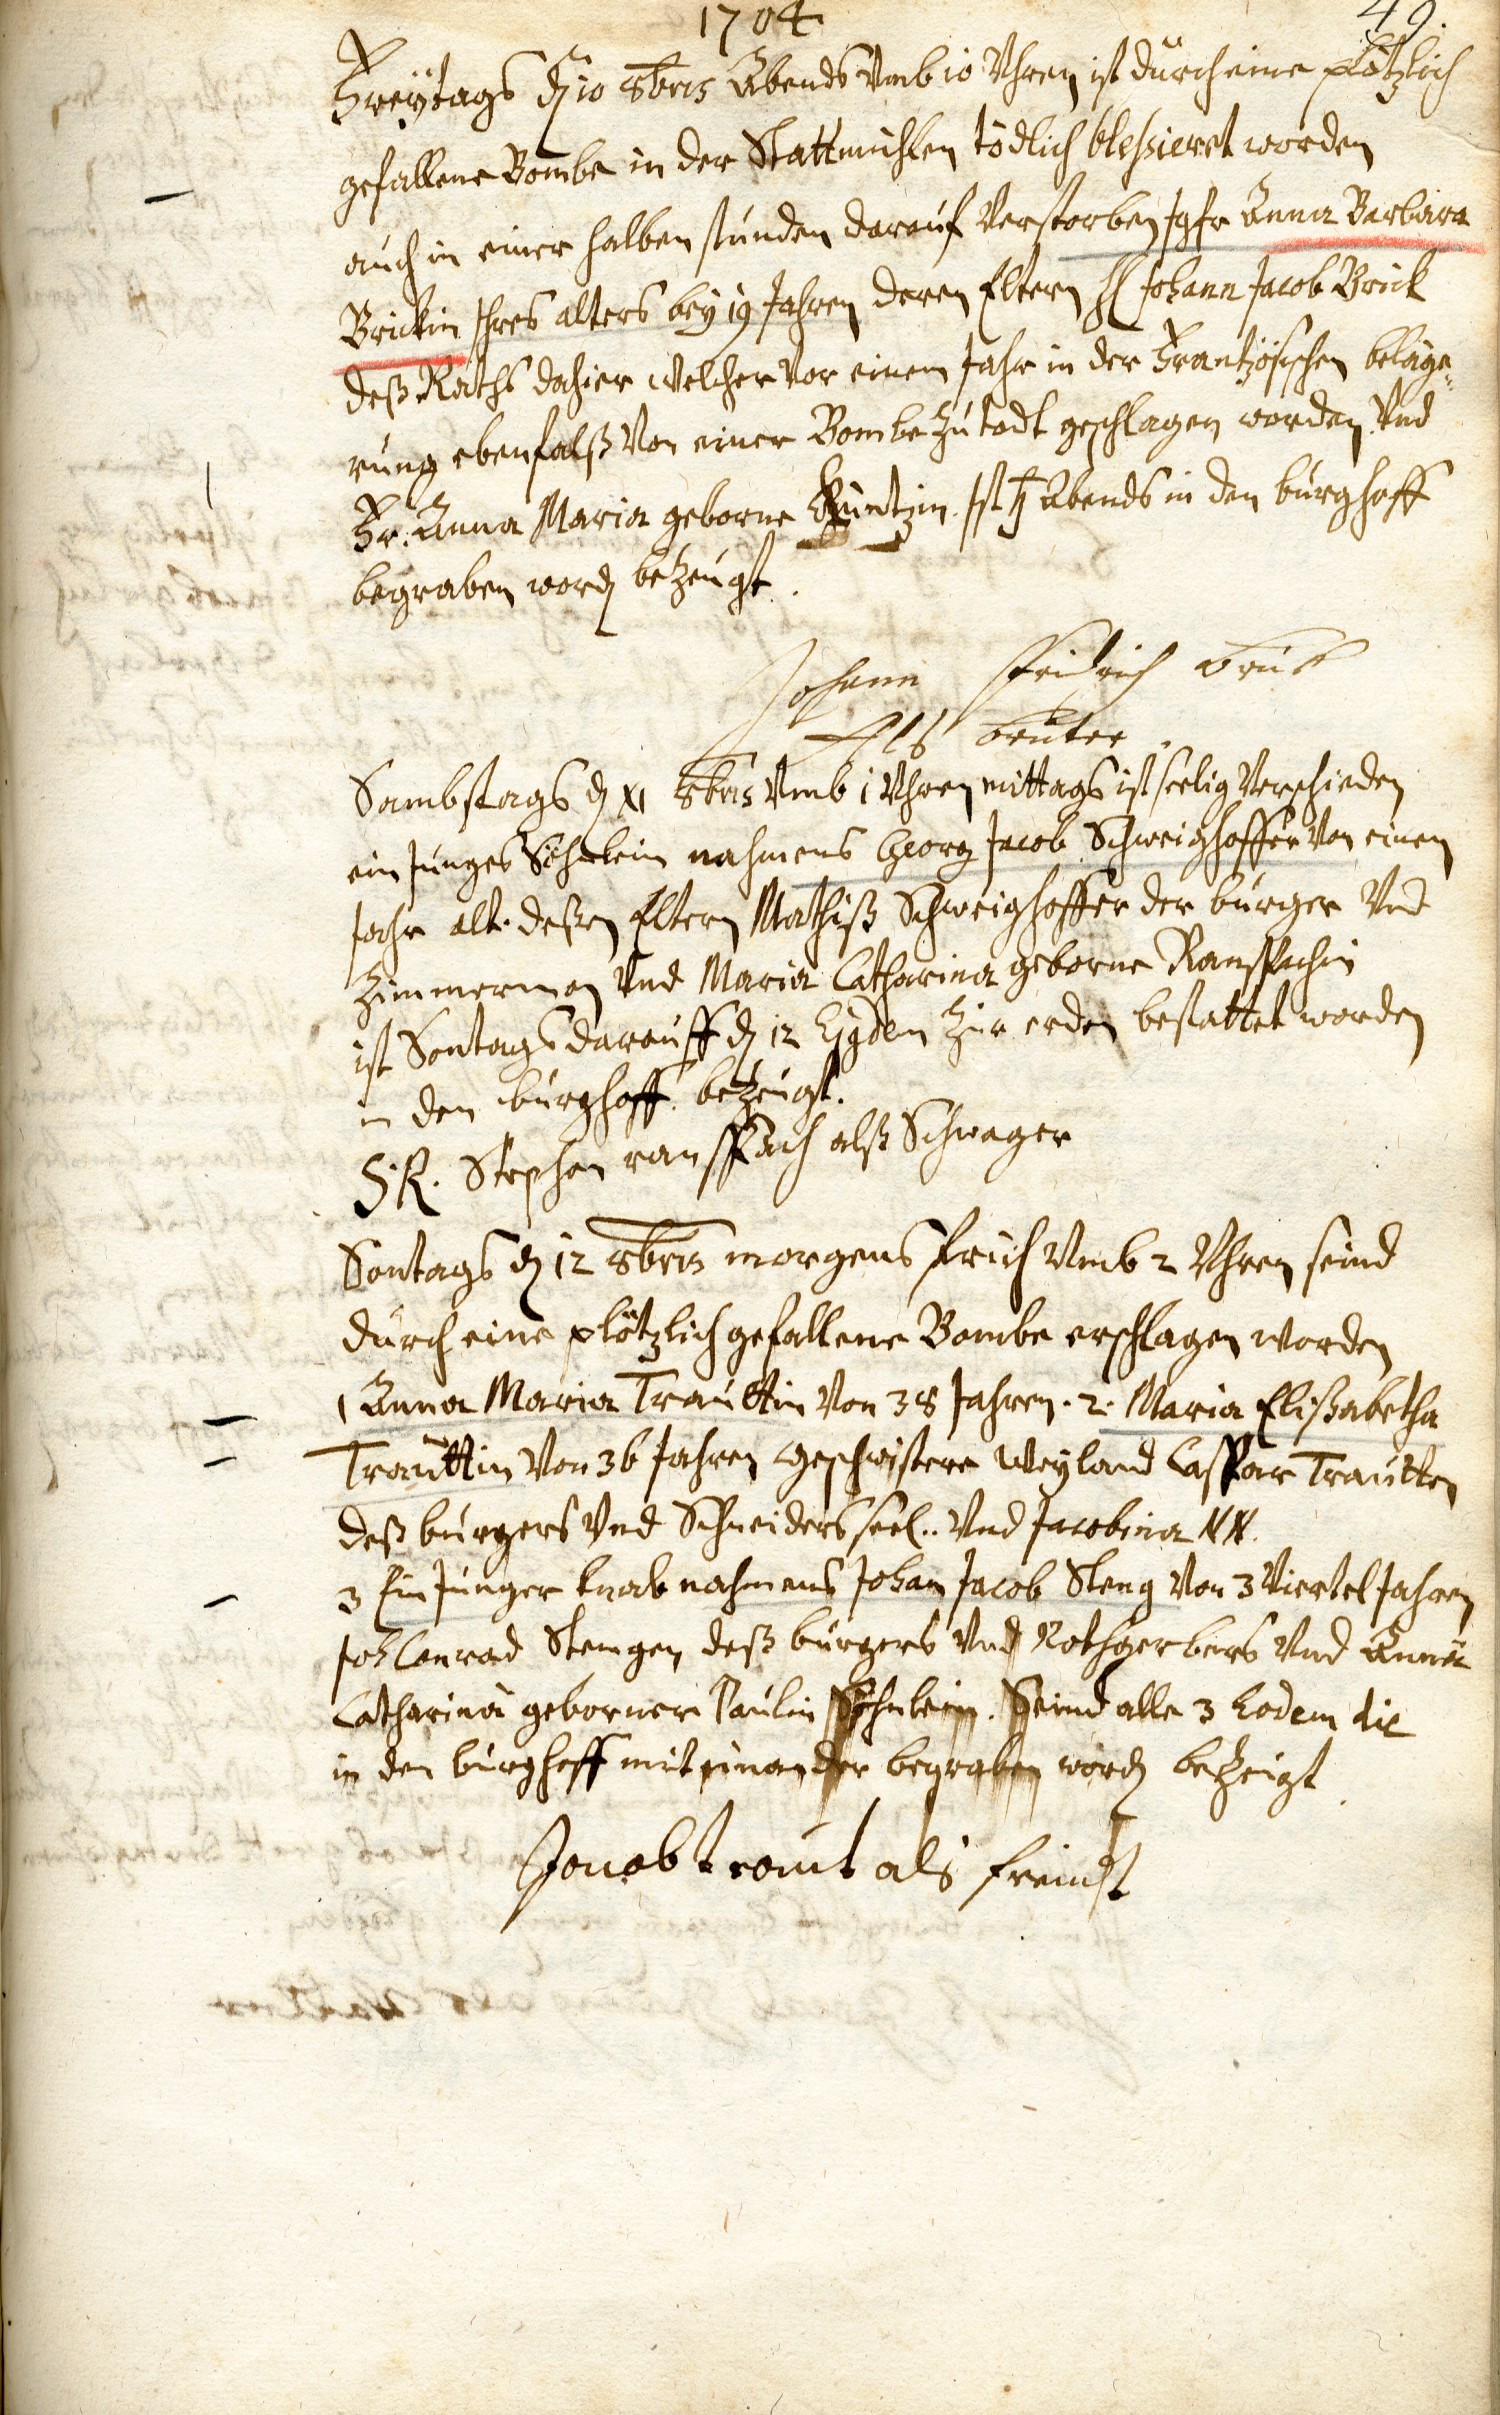 1704
49.
Freÿtags d 10 8bris Abends Vmb 10 Vhren ist durch eine plötzlich
gefallene Bombe in der Stattmühlen tödlich bleßieret worden
auch in einer halben stunden darauf Verstorben Jgfr Anna Barbara
Brickin Ihres alters beÿ 19 Jahren deren Eltern H Johann Jacob Brick
deß Raths dahier welcher Vor einem Jahr in der Frantzösischen beläge„
rung ebenfalß Von einer Bombe zu todt geschlagen worden Vnd
Fr: Anna Maria geborne Kuntzin. Ist Abends in den burghoff
begraben word bezeugt.
Johann Fridrich Brück
Als Bruter
Sambstags d XI 8bris Vmb 1 Vhren mittags ist seelig Verschieden
ein Junges Söhnlein nahmens Georg Jacob Schweighoffer Von einem
Jahr alt. deßen Eltern Mathiß Schweighoffer der burger Vnd
Zimmerman Vnd Maria Catharina geborne Ranspachin
ist Sontags darauff d 12 Ejgdem Zur erden bestattet worden
in den burghoff bezeugt.
S. R. Stephan ranspach alß Schwager
Sontags d 12 8bris morgens früh Vmb 2 Vhren seind
durch eine plötzlich gefallene Bombe erschlagen worden
1 Anna Maria Trauttin Von 38 Jahren. 2. Maria Elisabetha
Trauttin Von 36 Jahren geschwistere Weyland Caspar Trautten
deß burgers Vnd Schneiders seel.. Vnd Jacobina NN.
3 Ein Junger knab nahmens Johan Jacob Steng Von 3 Viertel Jahren
Joh Conrad Stengen deß burgers Vnd Rothgerbers Vnd Anna
Catharina geborner Paulin Söhnlein. Seind alle 3 Eodem die
in den burghoff mit einander begraben word bezeigt
Jacob traut als freindt